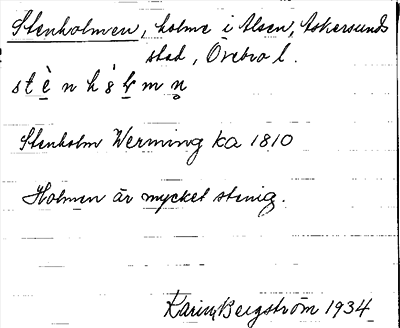 Stenholmen, holme i Alsen, Askersunds
stad, Örebro l.
stè̱nhåḻmn̥
Stenholm Werming ka 1810
Holmen är mycket stenig.
Karin Bergström 1934